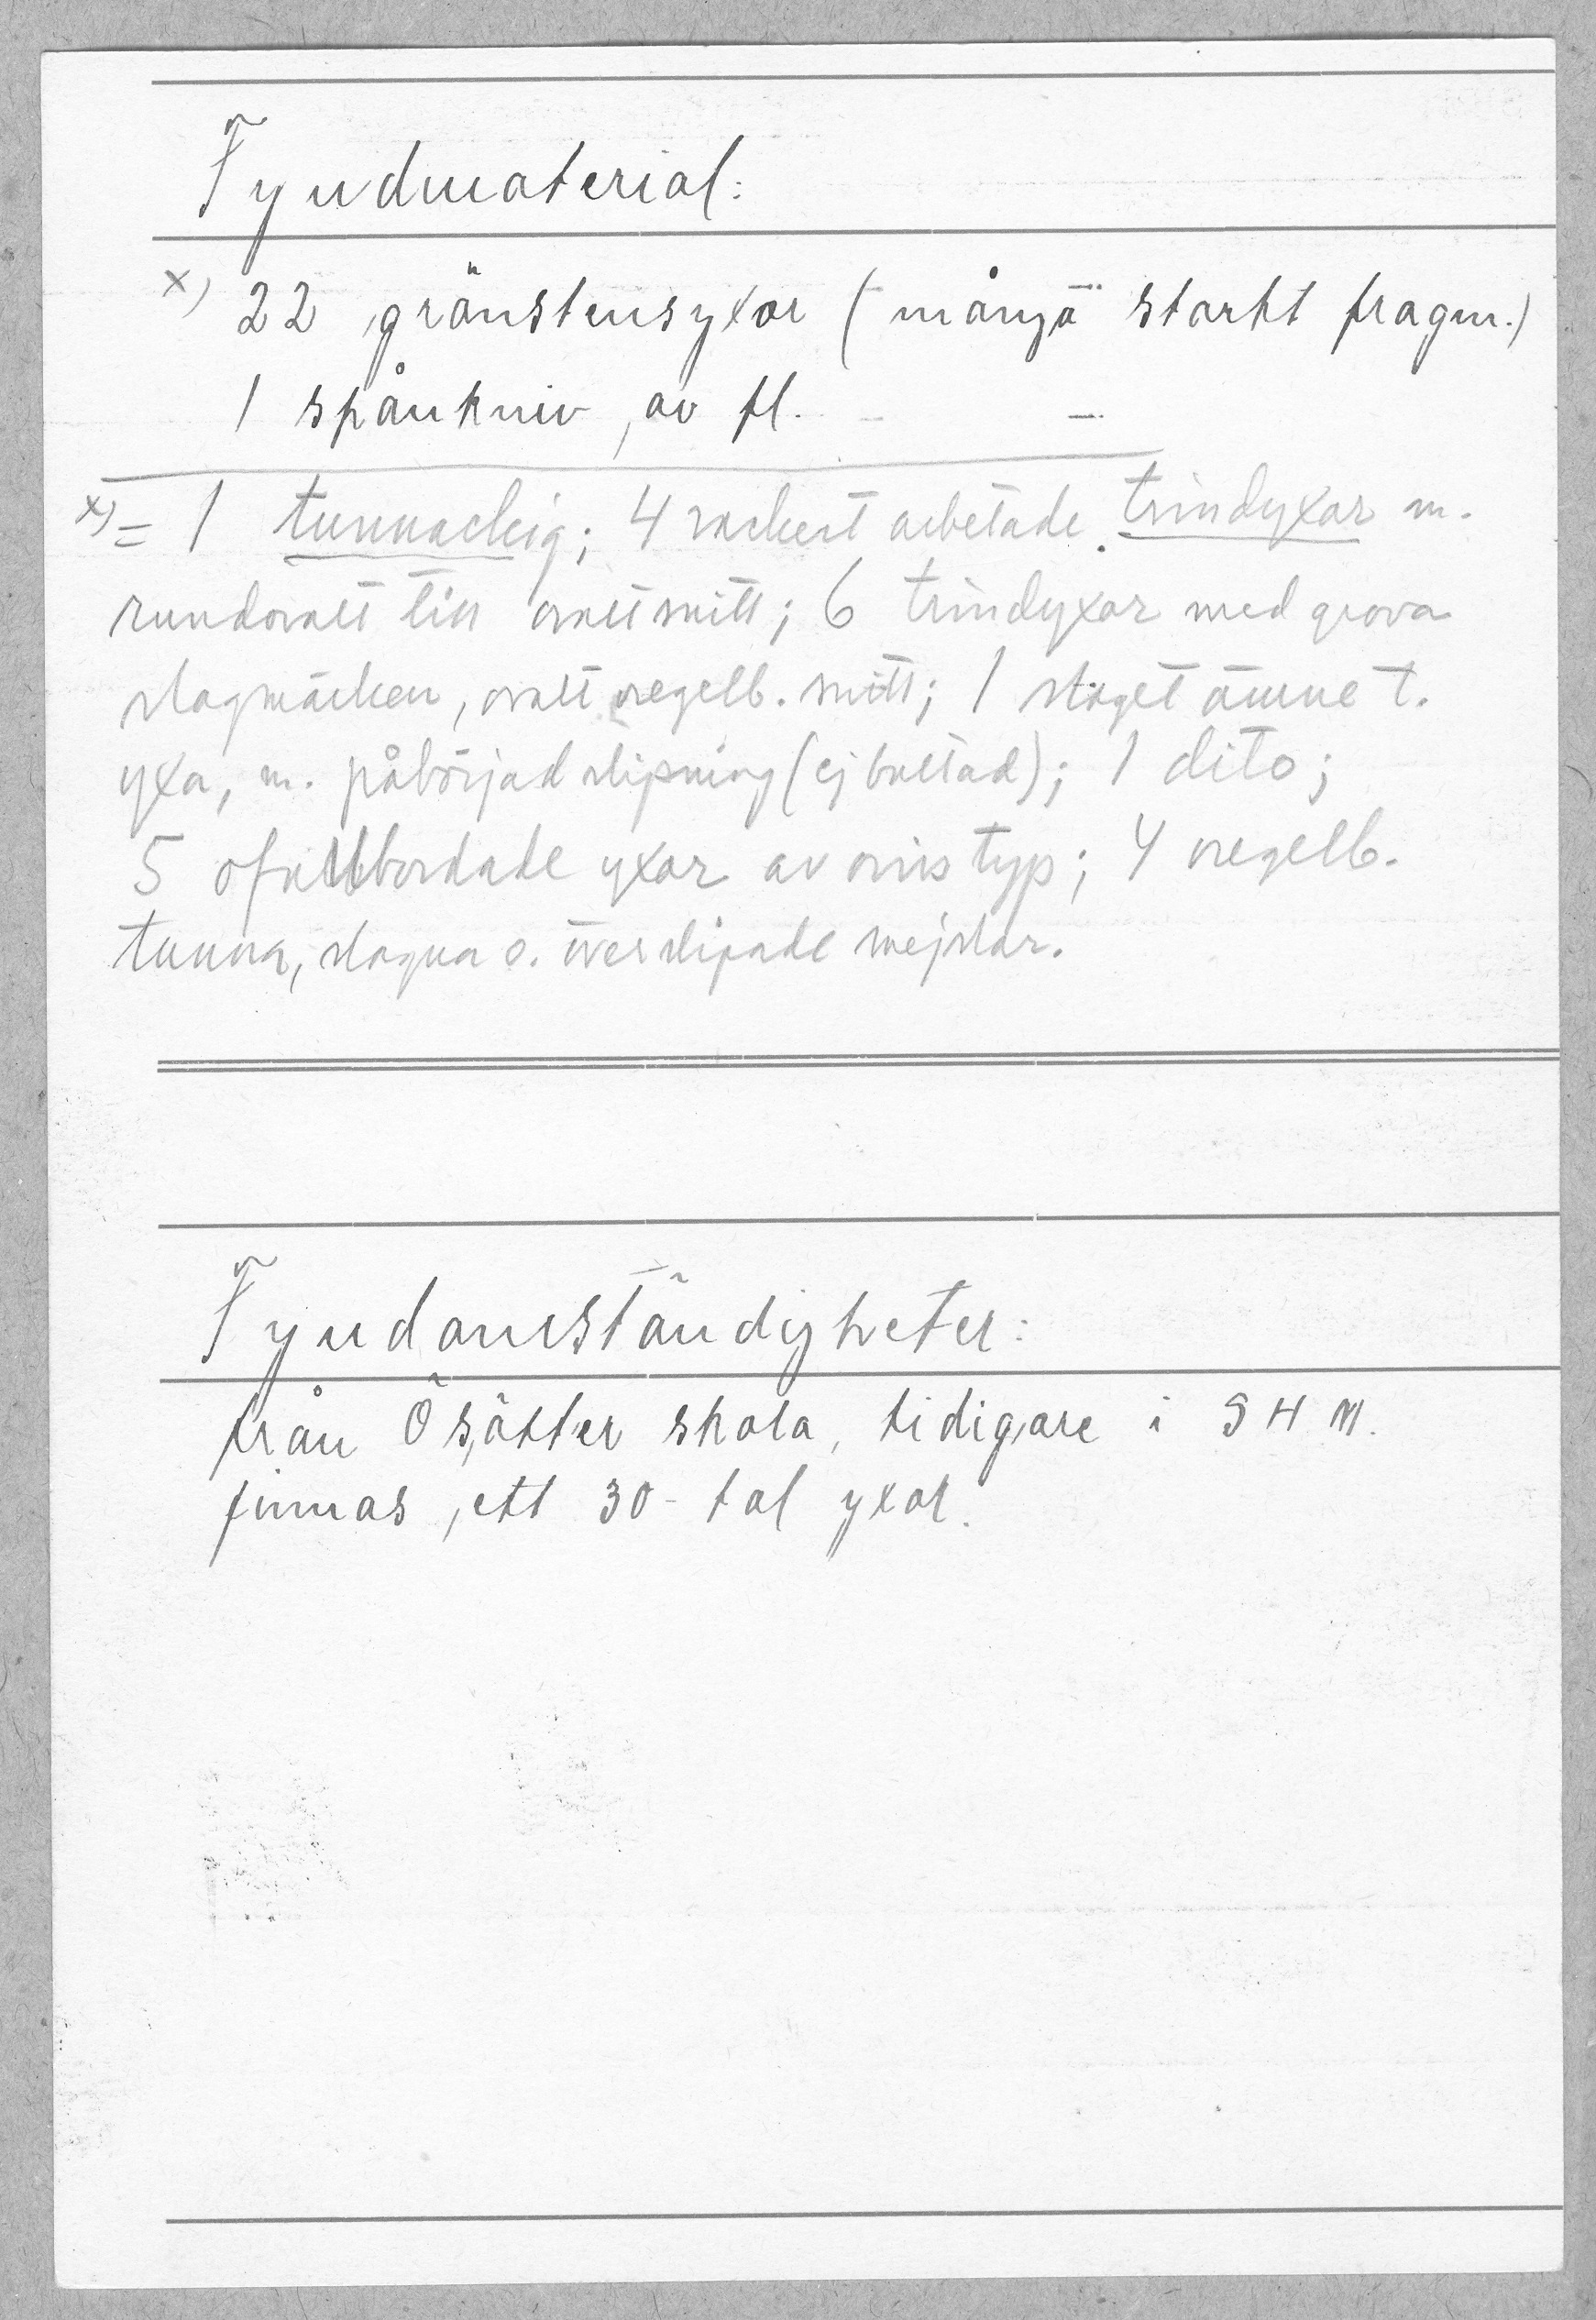 Fyndmaterial:
x) 22 grönstensyxor (många starkt fragm.)
1 spånkniv av fl. – –
x) = 1 tunnackig; 4 vackert arbetade trindyxor m.
rundovalt till ovalt snitt; 6 trindyxor med grova
slagmärken, ovalt oregelb. snitt; 1 slaget ämne t.
yxa, m. påbörjad slipning (ej bultad); 1 dito;
5 ofullbordade yxor av oviss typ; 4 oregelb.
tunna, slagna o. överslipade mejslar.
Fyndomständigheter:
från Ösätter skola, tidigare i SHM
finnas ett 30-tal yxor.